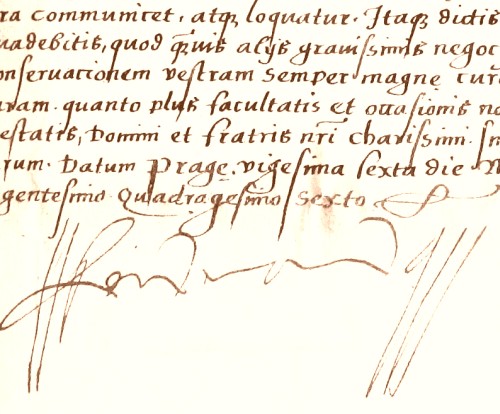 ra communicet, atq loquatur. Itaq dictis
uadebitis, quod q̃uis alijs grauissimis negoc
onseruationem vestram semper magnę cur
uram. quanto plus facultatis et occasionis no
estatis, Domini et fratris nr̃i charissimi. In
rum. Datum Pragę. vigesima sexta die
gentesimo Quadragesimo Sexto
Ferdinand